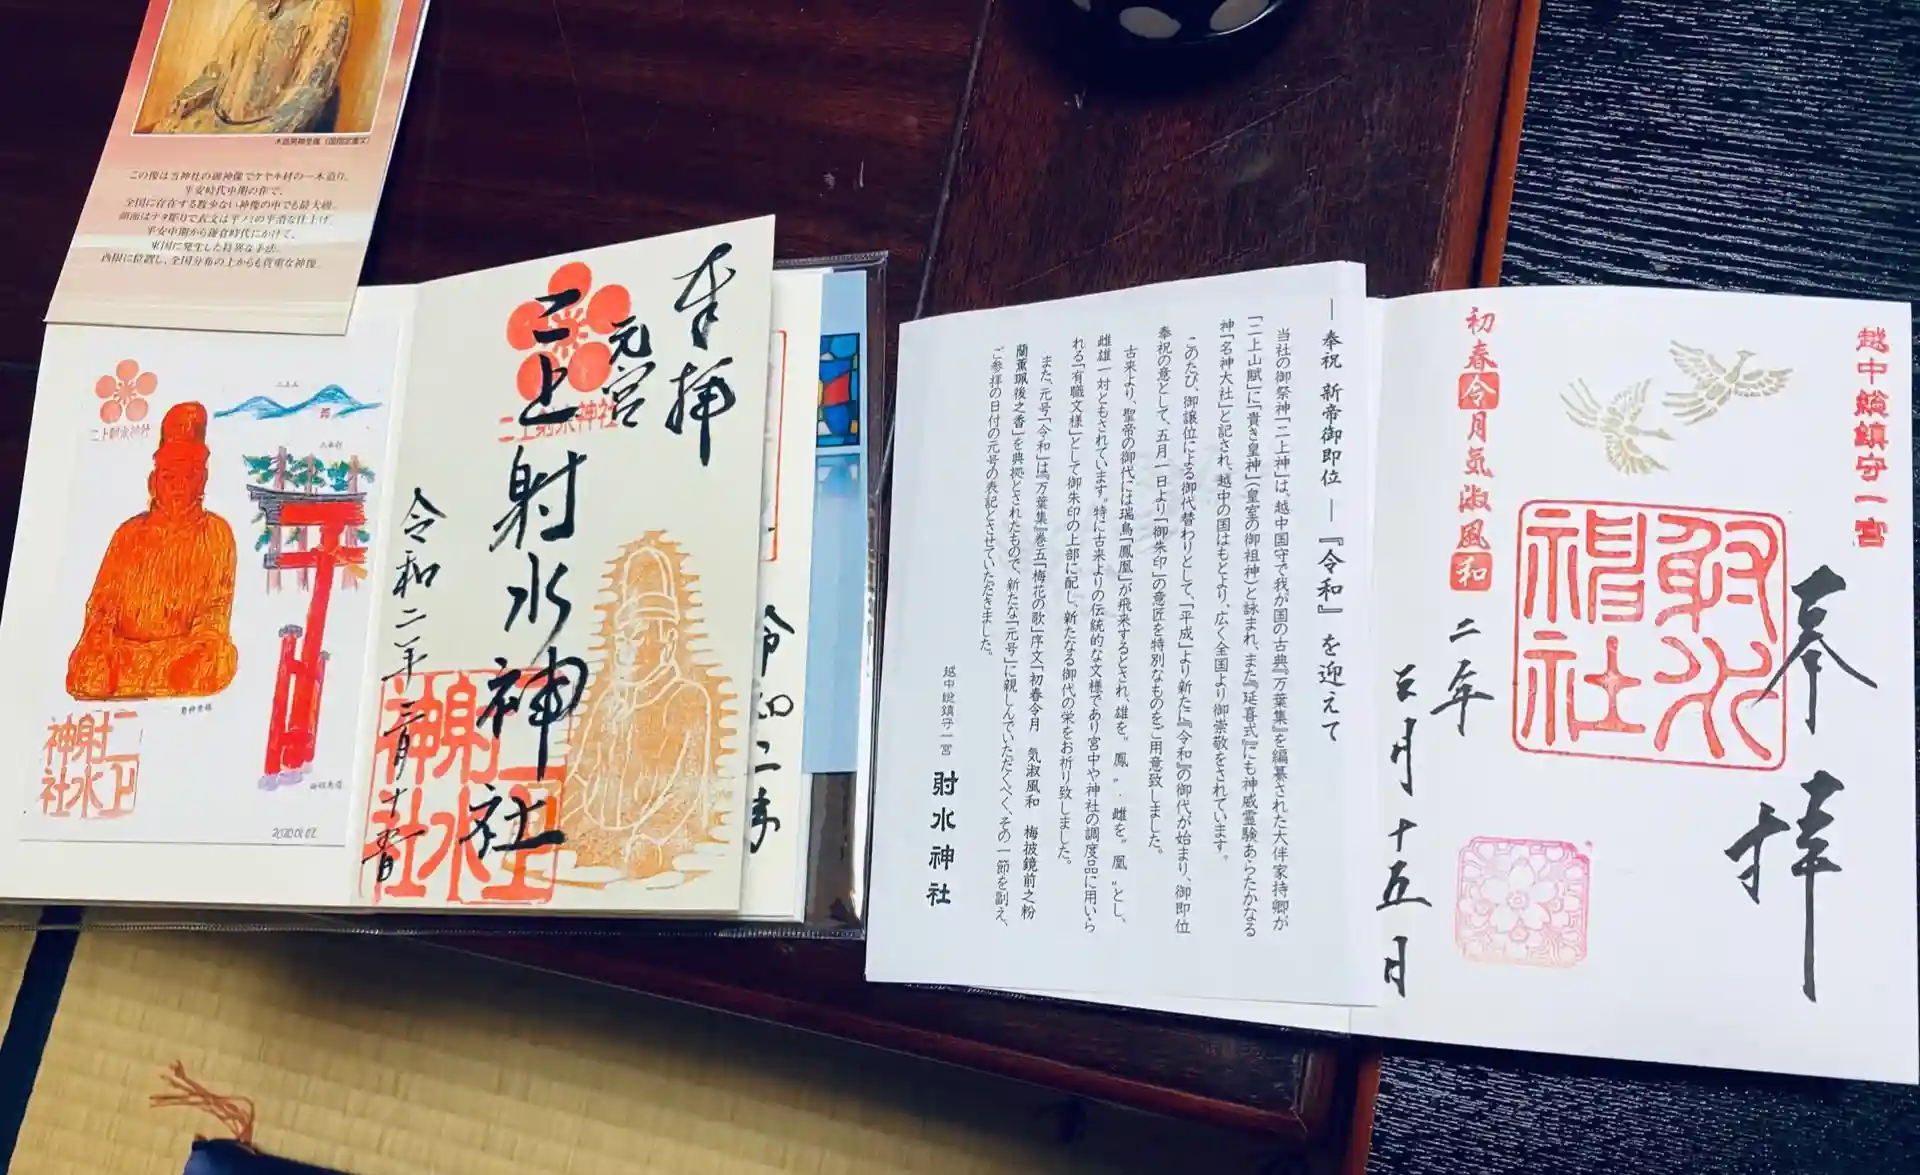 この像は当神社の御神像でケヤキ材の一木造り。
平安時代中期の作で、
全国に存在する数少ない神像の中でも最大級。
頭面はナタ彫りで衣文は平ノミの平滑な仕上げ。
平安中期から鎌倉時代にかけて、
東国に発生した特異な手法。
西限に位置し、全国分布の上からも貴重な神像。
二上射水神社
二上山
男神坐像
二上
射水
神社
2020.01.02
奉拝
元宮
二上射水神社
二上射水神社
令和二年三月十五日
二上
射水
神社
令和二年
― 奉祝 新帝御即位 ― 『令和』を迎えて
当社の御祭神「二上神」は、越中国守で我が国の古典『万葉集』を編纂された大伴家持卿が
「二上山賦」に「貴き皇神」(皇室の御祖神)と詠まれ、また『延喜式』にも神威霊験あらたかなる
神「名神大社」と記され、越中の国はもとより、広く全国より御崇敬をされています。
このたび、御譲位による御代替わりとして、「平成」より新たに『令和』の御代が始まり、御即位
奉祝の意として、五月一日より「御朱印」の意匠を特別なものをご用意致しました。
古来より、聖帝の御代には瑞鳥「鳳凰」が飛来するとされ、雄を〝鳳〟・雌を〝凰〟とし、
雌雄一対ともされています。特に古来よりの伝統的な文様であり宮中や神社の調度品に用いら
れる「有職文様」として御朱印の上部に配し、新たなる御代の栄をお祈り致しました。
また、元号「令和」は、『万葉集』巻五「梅花の歌」序文「初春令月 気淑風和 梅披鏡前之粉
蘭薫珮後之香」を典拠とされたもので、新たな「元号」に親しんでいただくべく、その一節を副え、
ご参拝の日付の元号の表記とさせていただきました。
越中総鎮守一宮
射水神社
越中総鎮守一宮
奉拝
射水
神社
初春令月気淑風和
二年
三月十五日